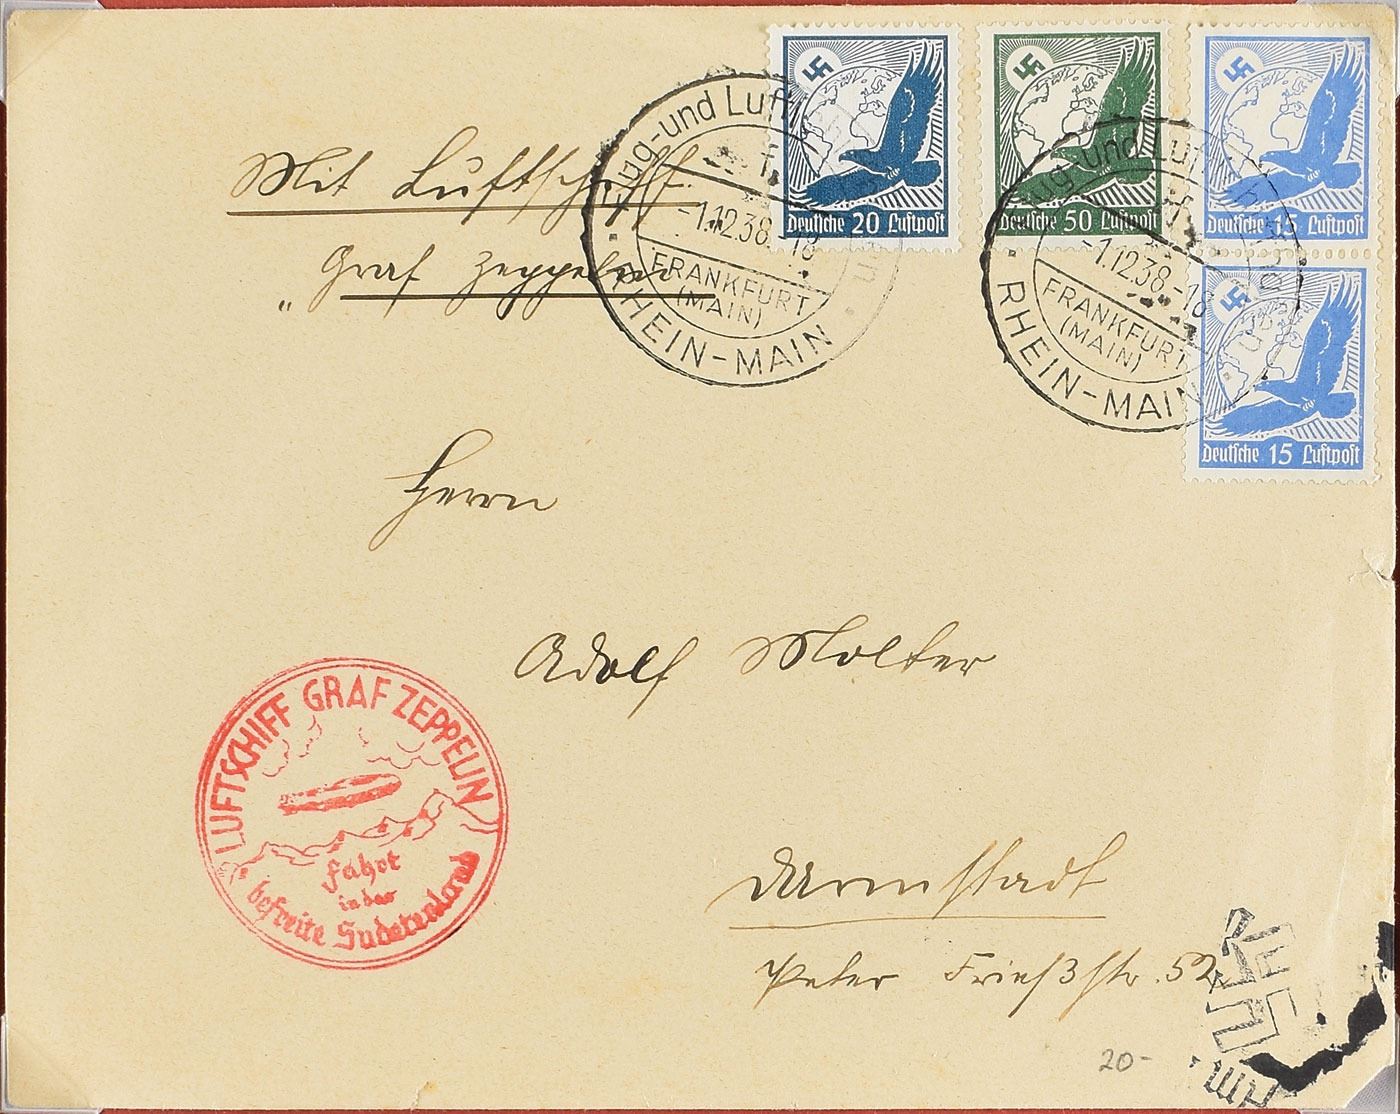 Deutsche 20 Luftpost
Deutsche 50 Luftpost
Deutsche 15 Luftpost
Deutsche 15 Luftpost
Flug-und Luft
-1.12.38.-18
FRANKFURT
(MAIN)
RHEIN-MAIN
Flug-und Luft
-1.12.38.-18
FRANKFURT
(MAIN)
RHEIN-MAIN
Mit Luftschiff
„Graf Zeppelin
Herrn
Adolf Molter
Darmstadt
Peter Frießstr. 52
LUFTSCHIFF GRAF ZEPPELIN
Fahrt
in das
befreite Sudetenland
20-